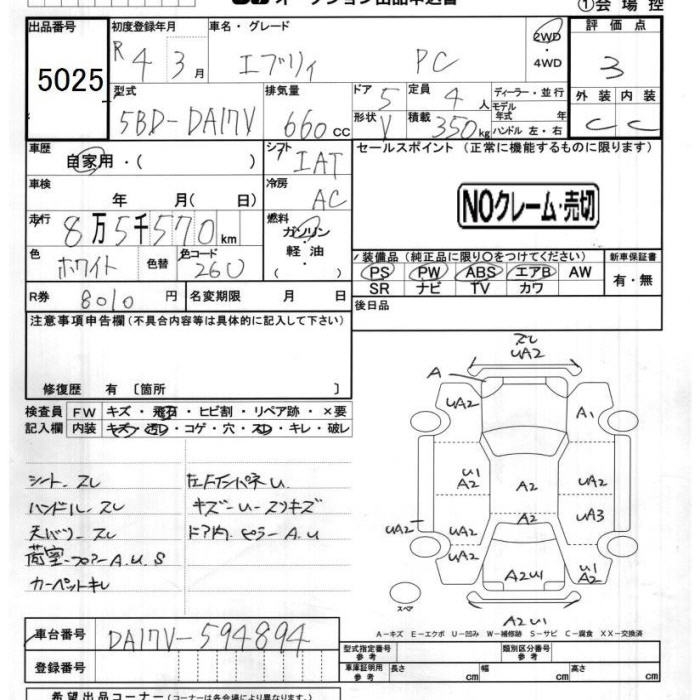 オークション出品申込書
①会場控
出品番号 5025
初度登録年月 R4 3月
車名・グレード エブリィ PC
2WD・4WD
評価点 3
型式 5BD-DA17V
排気量 660cc
ドア 5
定員 4人
形状 V
積載 350kg
ディーラー・並行
モデル年式 年
ハンドル 左・右
外装 C
内装 C
車歴 自家用・( )
シフト IAT
セールスポイント (正常に機能するものに限ります)
車検 年 月( 日)
冷房 AC
NOクレーム・売切
走行 8万5千570km
燃料 ガソリン・軽油( )
色 ホワイト 色替
色コード 26U
装備品 (純正品に限り○をつけてください)
新車保証書 有・無
PS PW ABS エアB AW
SR ナビ TV カワ
R券 8010円
名変期限 月 日
後日品
注意事項申告欄 (不具合内容等は具体的に記入して下さい)
修復歴 有 〔箇所 〕
検査員記入欄
FW キズ・飛石・ヒビ割・リペア跡・×要
内装 キズ・汚レ・コゲ・穴・スレ・キレ・破レ
シート スレ
ハンドル スレ
天バリ スレ
荷室-フロアーA.U.S
カーペットキレ
左Fインパネ U
キズ-U-スリキズ
ドア内 ピラーA.U
スレ
UA2
A
UA2
A1
U1
A2
A2
UA2
A2
UA3
UA2
UA2
UA2
A2U1
U1
A2
スペア
A2U1
A-キズ E-エクボ U-凹み W-補修跡 S-サビ C-腐食 XX-交換済
車台番号 DA17V-594894
登録番号
型式指定番号 参考
類別区分番号 参考
車庫証明用 参考 長さ cm 幅 cm 高さ cm
希望出品コーナー (コーナーは各会場により異なります。)